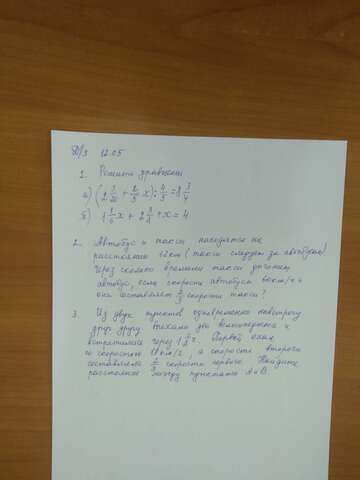 Д/З 12.05
1. Решить уравнение
а) (2 3/20 + 2/5 x) : 4/5 = 8 3/4
б) 1 1/6 x + 2 3/8 + x = 4
2. Автобус и такси находятся на
расстоянии 12 км (такси следует за автобусом)
Через сколько времени такси догонит
автобус, если скорость автобуса 60 км/ч и
она составляет 2/3 скорости такси?
3. Из двух пунктов одновременно навстречу
друг другу выехали два велосипедиста и
встретились через 1 1/2 ч. Первый ехал
со скоростью 18 км/ч, а скорость второго
составляет скорости первого. Найдите
расстояние между пунктами А и В.